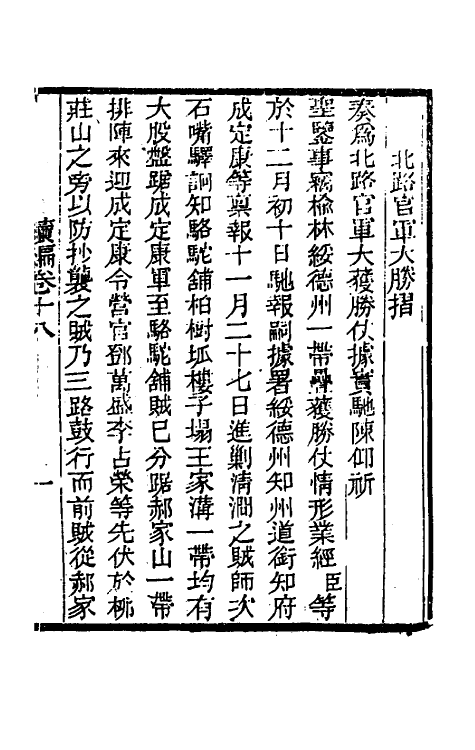 北路官軍大勝摺
奏爲北路官軍大獲勝仗據實馳陳仰祈
聖鑒事竊榆林綏德州一帶疊獲勝仗情形業經臣等
於十二月初十日馳報嗣據署綏德州知州道銜知府
成定康等稟報十一月二十七日進剿清澗之賊師次
石嘴驛訶知駱駝舖柏樹坬樓子塌王家溝一帶均有
大股盤踞成定康軍至駱駝舖賊已分踞郝家山一帶
排陣來迎成定康令營官鄧萬盛李占榮等先伏於柳
莊山之旁以防抄襲之賊乃三路鼓行而前賊從郝家
續編卷十八
一